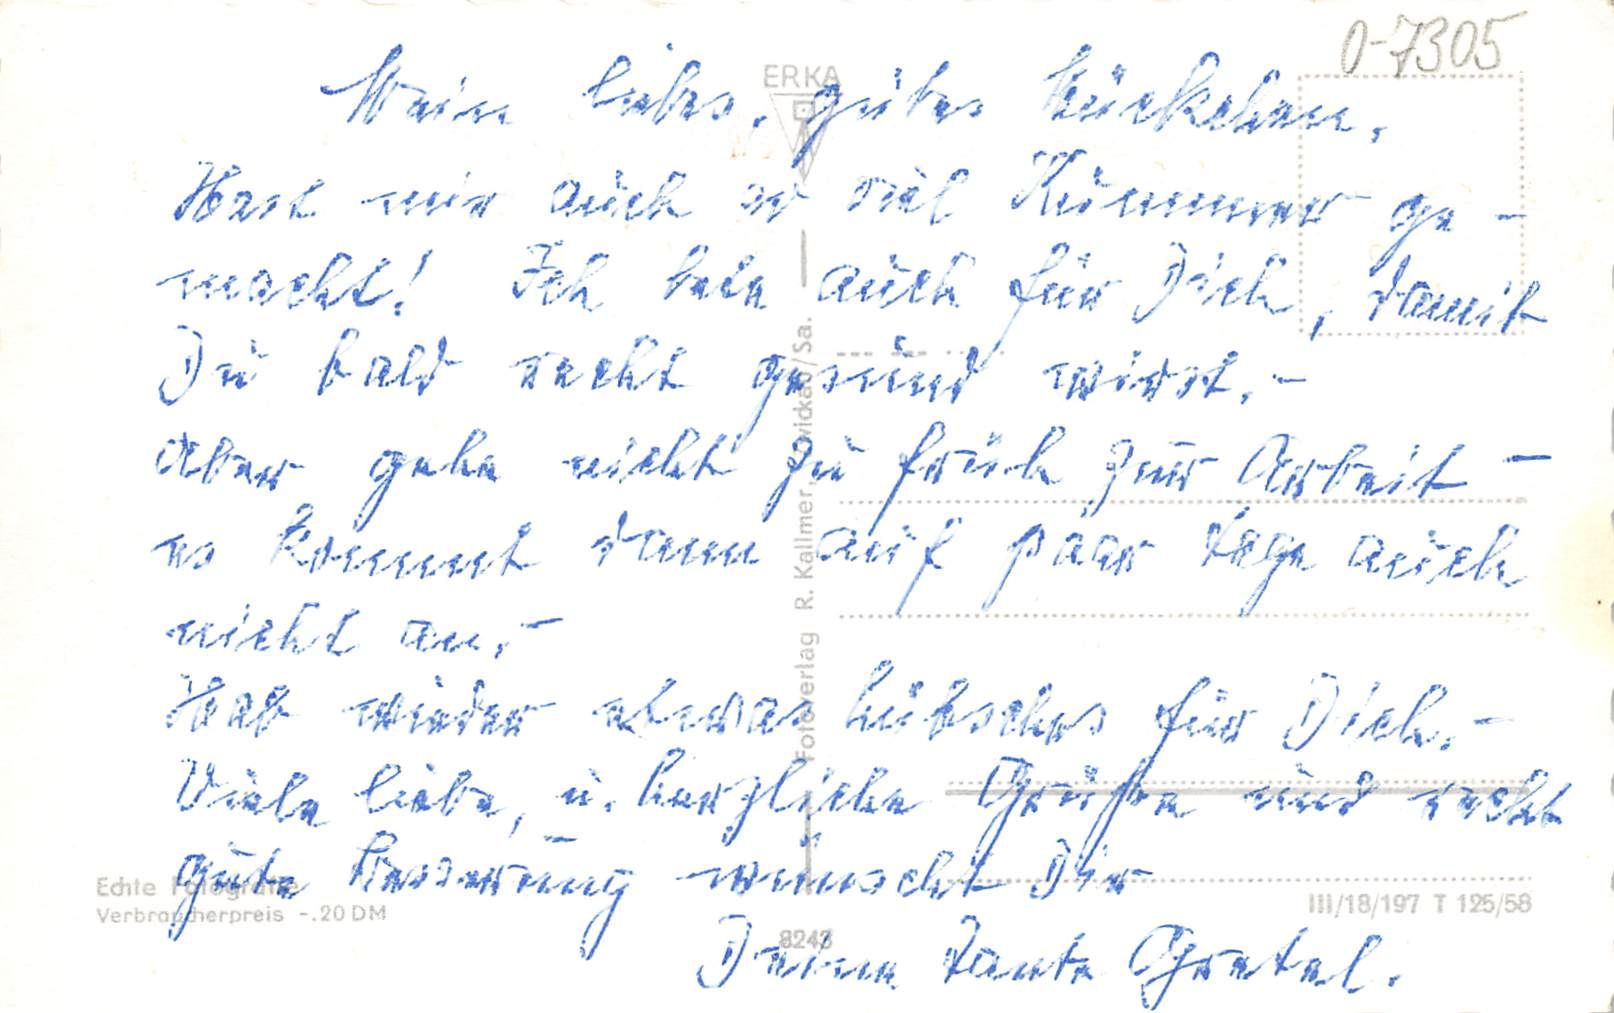 0-7305
ERKA
Mein liebes, gutes
Hast mir auch so viel Kummer ge-
macht! Ich bete auch für Dich, damit
Du bald recht gesund wirst.-
Aber gehe nicht zu früh zur Arbeit -
es kommt dann auf paar Tage auch
nicht an.-
Hab wieder etwas hübsches für Dich.-
Viele liebe, u. herzliche Grüße und recht
gute Besserung wünscht Dir
Deine Tante Gretel.
Fotoverlag R. Kallmer, Zwickau/Sa.
Echte Fotografie
Verbraucherpreis -.20 DM
8243
III/18/197 T 125/58